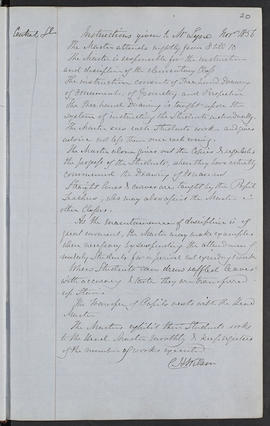 20
Central St
Instructions given to Mr Tyre Novr 1856
The Master attends nightly from 8 till 10
The Master is responsible for the instruction
and discipline of the elementary Class
The instruction consists of Freehand Drawing
of Ornament, of Geometry and Perspective
The Freehand Drawing is taught upon the
system of instructing the Students individually
The Master sees each Students work and gives
advice not less than once each evening.
The Master alone gives out the Copies & regulates
the progress of the Students, when they have entirely
commenced the Drawing of Ornament
Straight lines & curves are taught by the Pupil
Teachers, who may also assist the Master in
other Classes.
As the maintenance of discipline is of
great moment, the Master may make examples
when necessary by suspending the attendance of
unruly Students for a period not exceeding 1 week
When Students can draw scaffled leaves
with accuracy & taste they are transferred
up Stairs
The Transfer of Pupils rests with the Head
Master
The Master exhibits their Students works
to the Head Master monthly & keeps registers
of the number of works executed
C H Wilson